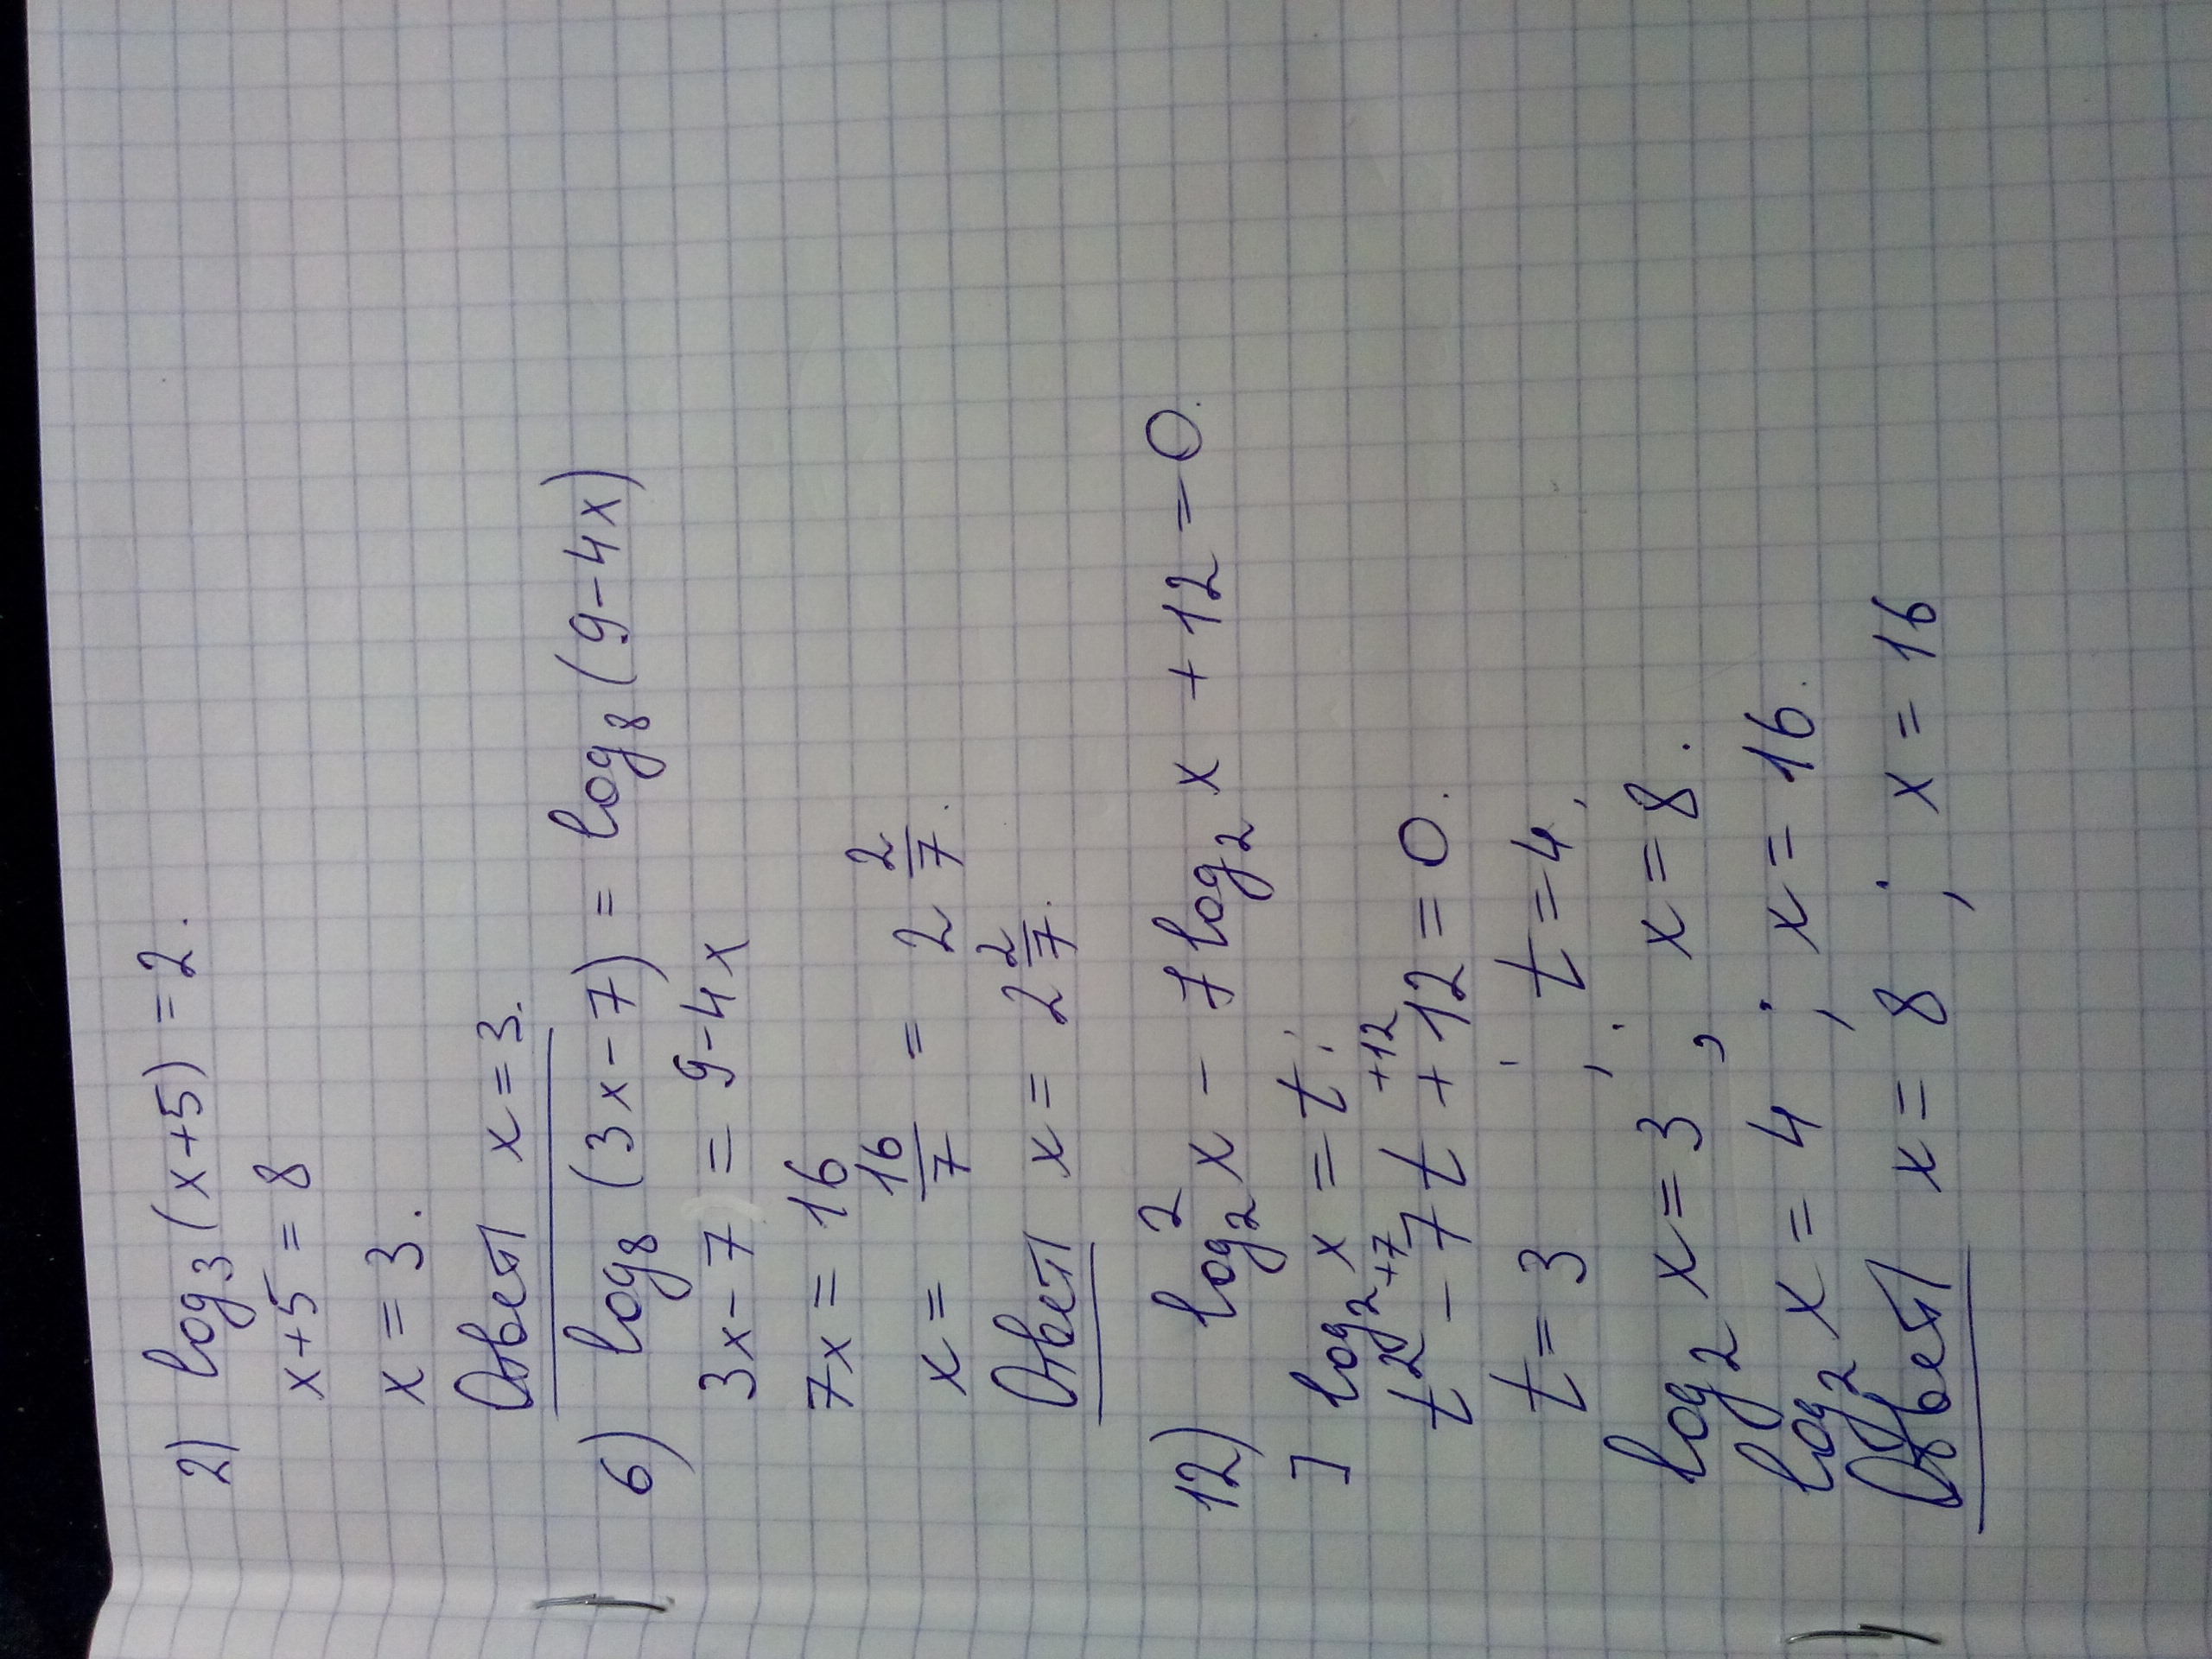 2) log₃(x+5) = 2.
x+5 = 8
x = 3.
Ответ x = 3.
6) log₈ (3x-7) = log₈ (9-4x)
3x-7 = 9-4x
7x = 16
x = 16/7 = 2 2/7.
Ответ x = 2 2/7.
12) log₂²x - 7log₂ x + 12 = 0.
] log₂ x = t.
+7 +12
t² - 7t + 12 = 0.
t = 3 ; t = 4.
log₂ x = 3 ; x = 8.
log₂ x = 4 ; x = 16.
Ответ x = 8 ; x = 16